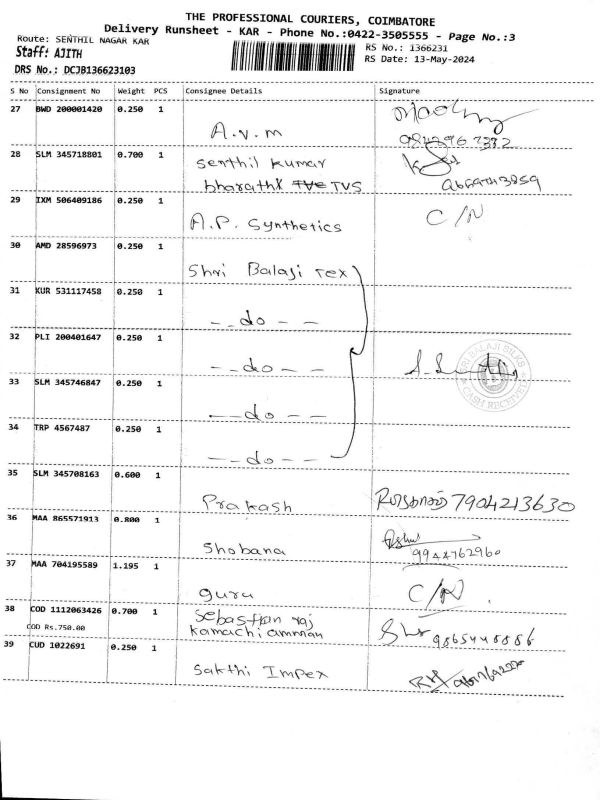 THE PROFESSIONAL COURIERS, COIMBATORE
Delivery Runsheet - KAR - Phone No.:0422-3505555 - Page No.:3
Route: SENTHIL NAGAR KAR
RS No.: 1366231
Staff: AJITH
RS Date: 13-May-2024
DRS No.: DCJB136623103
S No Consignment No Weight PCS Consignee Details Signature
27 BWD 200001420 0.250 1
A.V.M
28 SLM 345718801 0.700 1 Senthil Kumar
bharathi TVS
29 IXM 506409186 0.250 1 C/N
A.P. Synthetics
30 AMD 28596973 0.250 1
Shri Balaji Tex
31 KUR 531117458 0.250 1
- - do - -
32 PLI 200401647 0.250 1
- - do - -
SRI BALAJI SILKS
CASH RECEIVED
33 SLM 345746847 0.250 1
- - do - -
34 TRP 4567487 0.250 1
- - do - -
35 SLM 345708163 0.600 1
Prakash 7904213630
36 MAA 865571913 0.800 1
Shobana 9944762960
37 MAA 704195589 1.195 1
guru C/N
38 COD 1112063426 0.700 1 Sebastian raj
COD Rs.750.00 Kamachi amman
39 CUD 1022691 0.250 1
Sakthi Impex